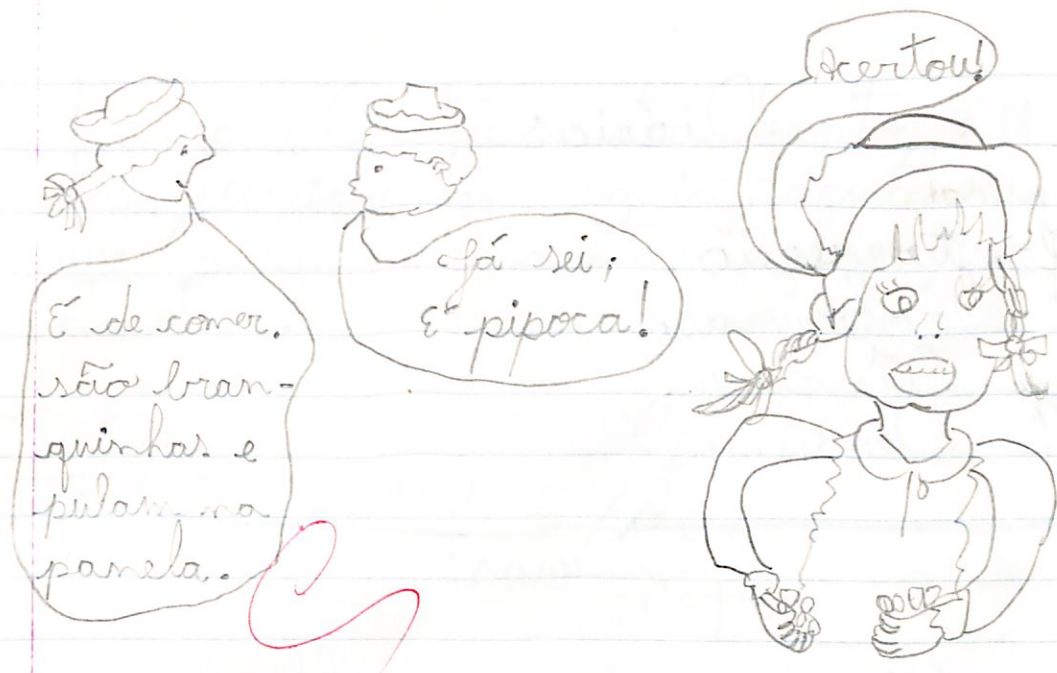 É de comer.
são bran-
quinhas e
pulam na
panela.
Já sei;
É pipoca!
Acertou!